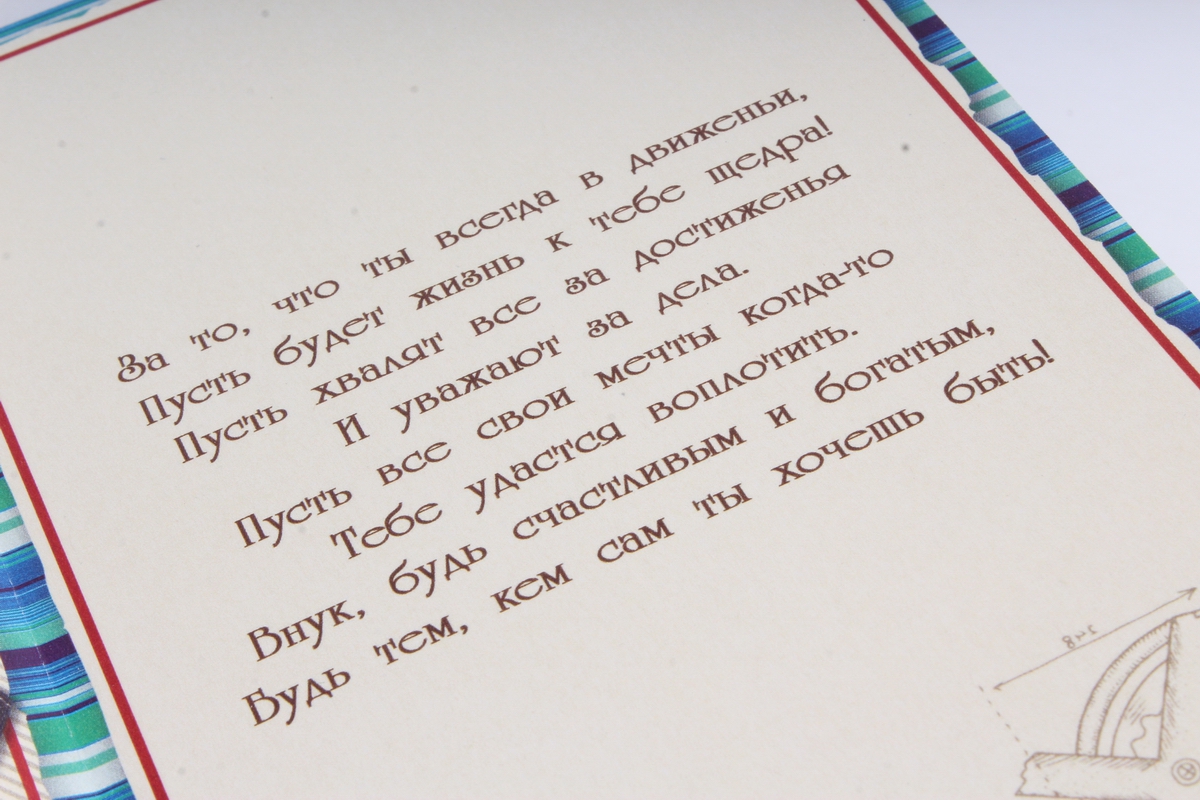 За то, что ты всегда в движеньи,
Пусть будет жизнь к тебе щедра!
Пусть хвалят все за достиженья
И уважают за дела.
Пусть все свои мечты когда-то
Тебе удастся воплотить.
Внук, будь счастливым и богатым,
Будь тем, кем сам ты хочешь быть!